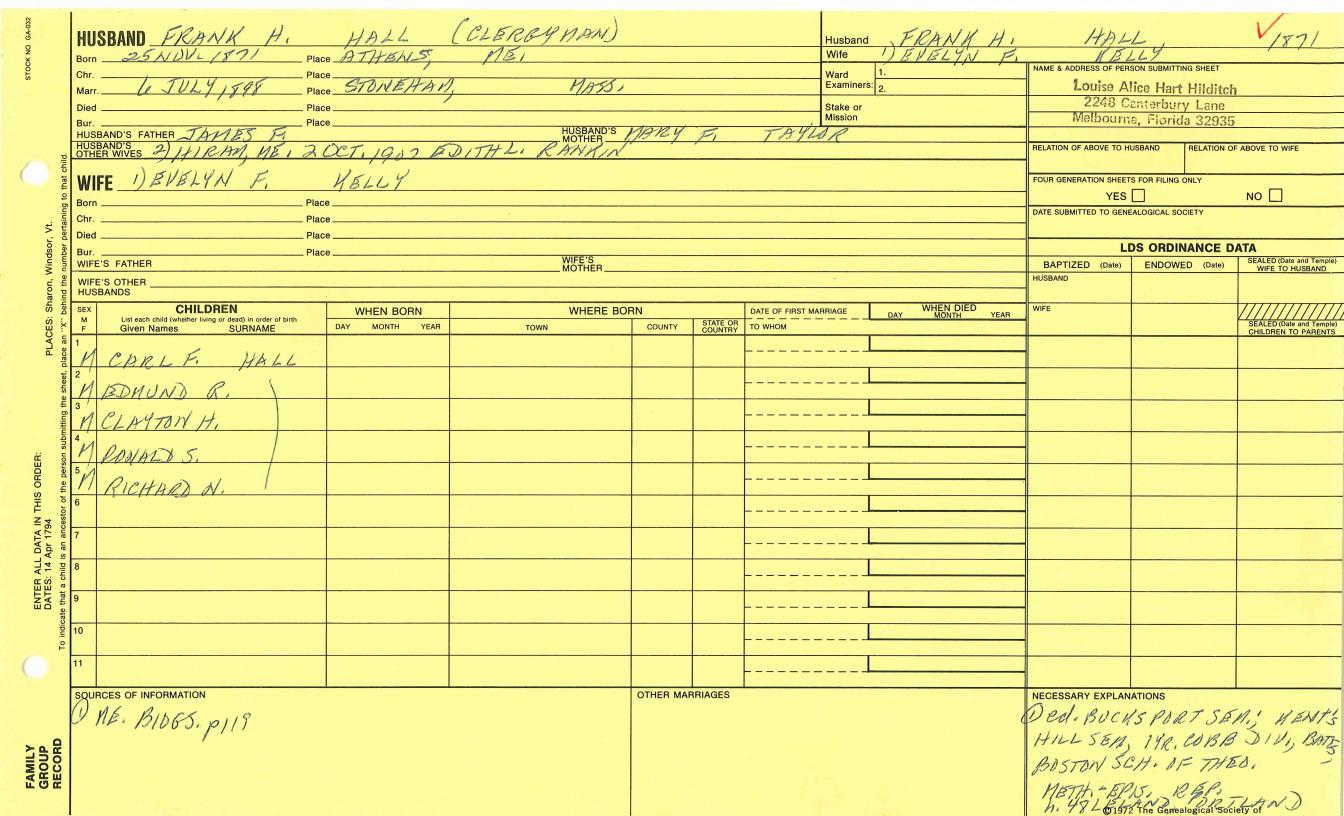 STOCK NO. GA-032
HUSBAND FRANK H. HALL (CLERGYMAN)
Born 25 NOV. 1871 Place ATHENS, ME.
Chr. Place
Marr. 6 JULY, 1898 Place STONEHAM, MASS.
Died Place
Bur. Place
HUSBAND'S FATHER JAMES F. HUSBAND'S MOTHER MARY F. TAYLOR
HUSBAND'S OTHER WIVES 2) HIRAM, ME. 2 OCT. 1907 EDITH L. RANKIN
Husband FRANK H. HALL 1871
Wife 1) EVELYN F. KELLY
Ward Examiners: 1.
2.
Stake or Mission
NAME & ADDRESS OF PERSON SUBMITTING SHEET
Louise Alice Hart Hilditch
2248 Canterbury Lane
Melbourne, Florida 32935
RELATION OF ABOVE TO HUSBAND RELATION OF ABOVE TO WIFE
FOUR GENERATION SHEETS FOR FILING ONLY
YES NO
DATE SUBMITTED TO GENEALOGICAL SOCIETY
WIFE 1) EVELYN F. KELLY
Born Place
Chr. Place
Died Place
Bur. Place
WIFE'S FATHER WIFE'S MOTHER
WIFE'S OTHER HUSBANDS
LDS ORDINANCE DATA
BAPTIZED (Date) ENDOWED (Date) SEALED (Date and Temple) WIFE TO HUSBAND
HUSBAND
WIFE
SEALED (Date and Temple) CHILDREN TO PARENTS
SEX M F
CHILDREN
List each child (whether living or dead) in order of birth
Given Names SURNAME
WHEN BORN
DAY MONTH YEAR
WHERE BORN
TOWN COUNTY STATE OR COUNTRY
DATE OF FIRST MARRIAGE
TO WHOM
WHEN DIED
DAY MONTH YEAR
1 M CARL F. HALL
2 M EDMUND R.
3 M CLAYTON H.
4 M DONALD S.
5 M RICHARD N.
6
7
8
9
10
11
SOURCES OF INFORMATION
① ME. BIOGS. p119
OTHER MARRIAGES
NECESSARY EXPLANATIONS
① ed. BUCKSPORT SEM.; KENT'S
HILL SEM, 1 YR. COBB DIV., BATES
BOSTON SCH. OF THEO.
METH.-EPIS. REP.
h. 48 LELAND, PORTLAND
©1972 The Genealogical Society of
PLACES: Sharon, Windsor, Vt.
To indicate that a child is an ancestor of the person submitting the sheet, place an "X" behind the number pertaining to that child.
ENTER ALL DATA IN THIS ORDER:
DATES: 14 Apr 1794
FAMILY
GROUP
RECORD